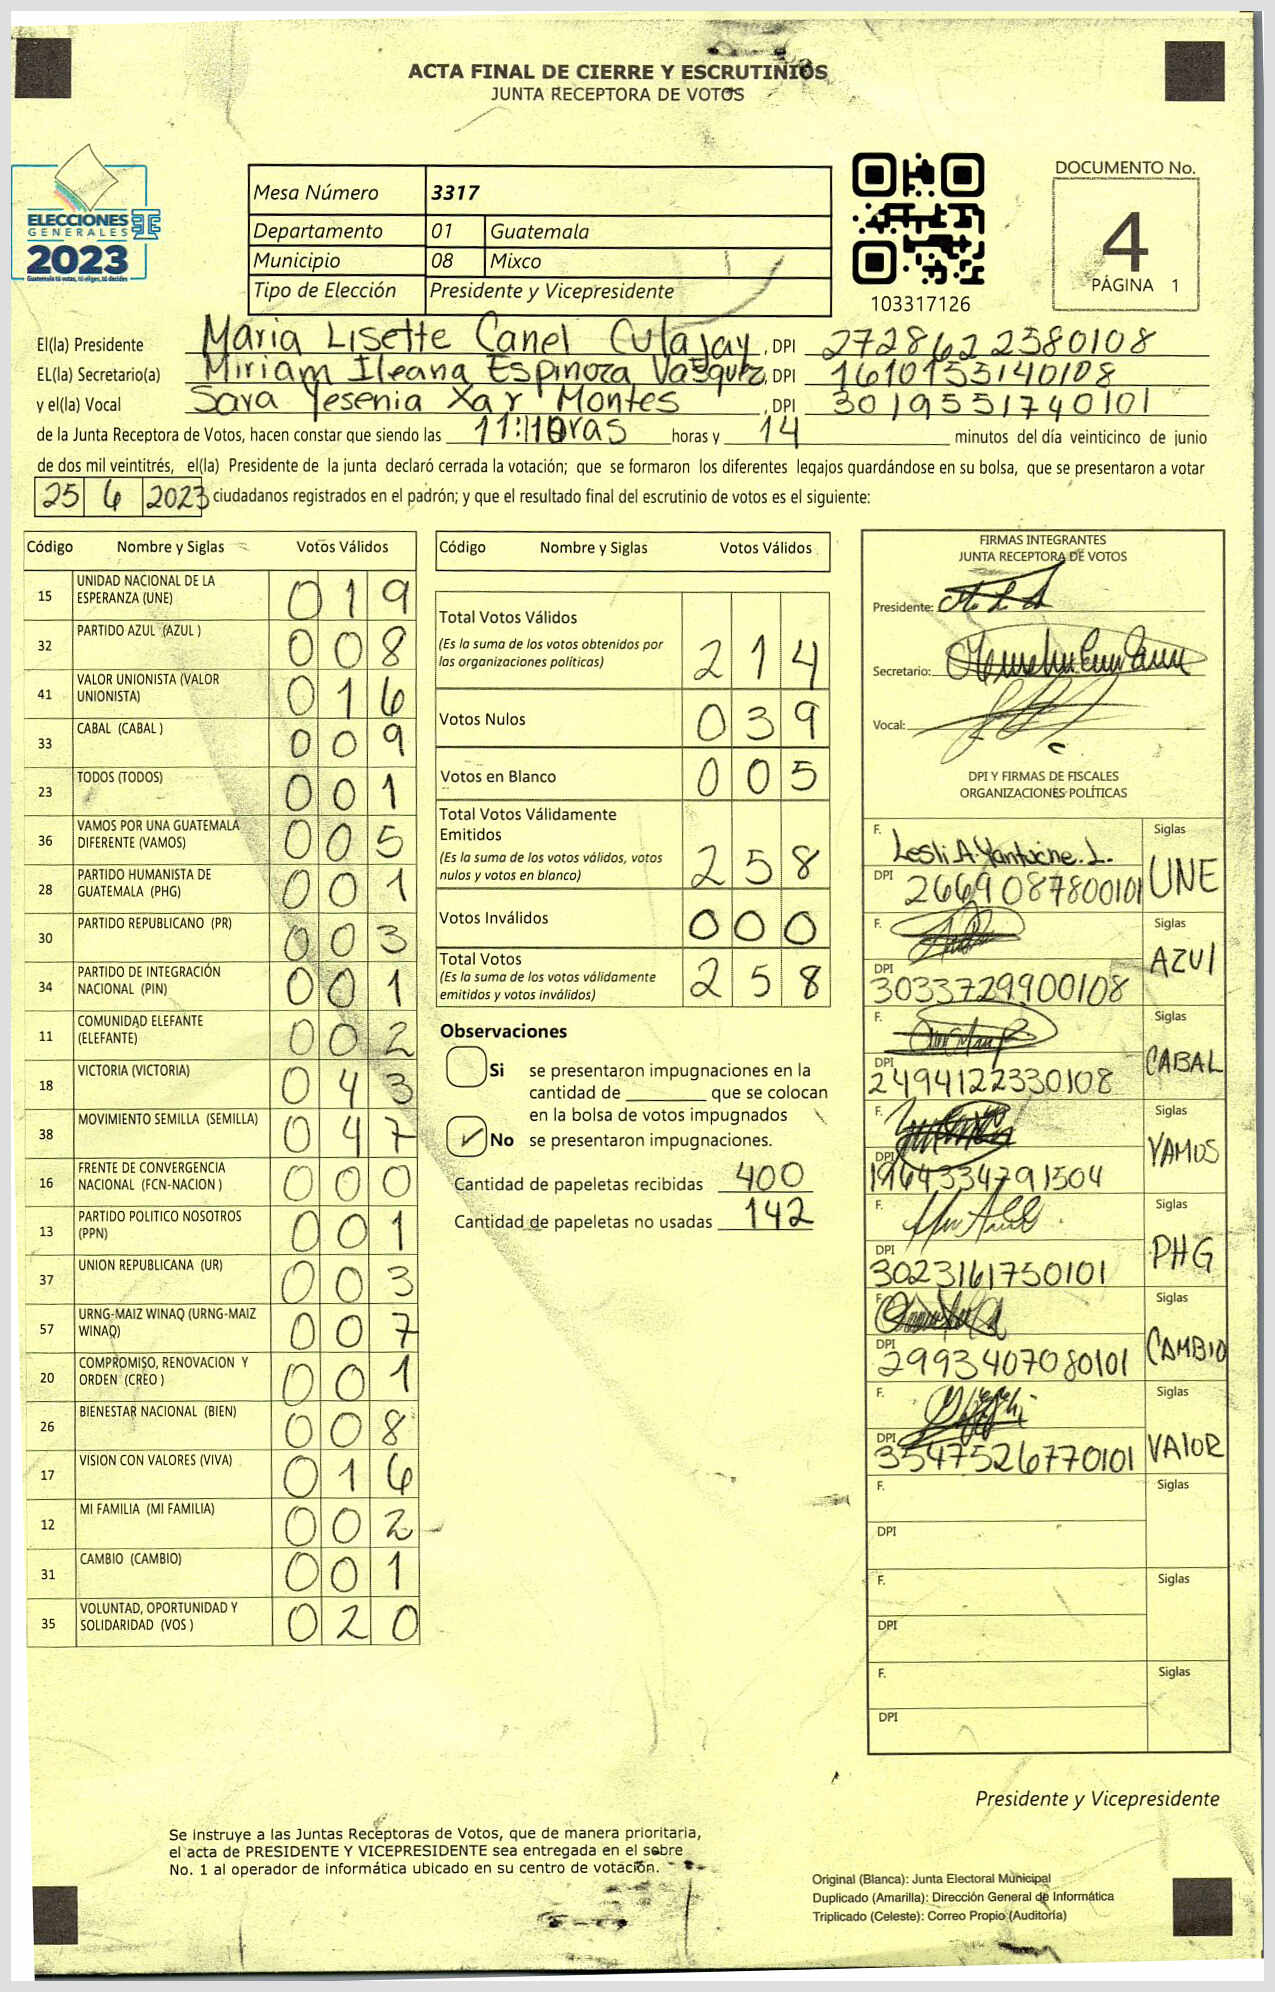 ACTA FINAL DE CIERRE Y ESCRUTINIOS
JUNTA RECEPTORA DE VOTOS
ELECCIONES
GENERALES
2023
Guatemala tú votas, tú eliges, tú decides
Mesa Número 3317
Departamento 01 Guatemala
Municipio 08 Mixco
Tipo de Elección Presidente y Vicepresidente
103317126
DOCUMENTO No.
4
PÁGINA 1
El(la) Presidente Maria Lisette Canel Culajay, DPI 2728622580108
EL(la) Secretario(a) Miriam Ileana Espinoza Vasquez, DPI 1610155140108
y el(la) Vocal Sara Yesenia Xar Montes, DPI 3019551740101
de la Junta Receptora de Votos, hacen constar que siendo las horas y 14 minutos del día veinticinco de junio
de dos mil veintitrés, el(la) Presidente de la junta declaró cerrada la votación; que se formaron los diferentes legajos guardándose en su bolsa, que se presentaron a votar
25 6 2023 ciudadanos registrados en el padrón; y que el resultado final del escrutinio de votos es el siguiente:
Código Nombre y Siglas Votos Válidos
15 UNIDAD NACIONAL DE LA ESPERANZA (UNE) 019
32 PARTIDO AZUL (AZUL ) 008
41 VALOR UNIONISTA (VALOR UNIONISTA) 016
33 CABAL (CABAL ) 009
23 TODOS (TODOS) 001
36 VAMOS POR UNA GUATEMALA DIFERENTE (VAMOS) 005
28 PARTIDO HUMANISTA DE GUATEMALA (PHG) 001
30 PARTIDO REPUBLICANO (PR) 003
34 PARTIDO DE INTEGRACIÓN NACIONAL (PIN) 001
11 COMUNIDAD ELEFANTE (ELEFANTE) 002
18 VICTORIA (VICTORIA) 043
38 MOVIMIENTO SEMILLA (SEMILLA) 047
16 FRENTE DE CONVERGENCIA NACIONAL (FCN-NACION ) 000
13 PARTIDO POLITICO NOSOTROS (PPN) 001
37 UNION REPUBLICANA (UR) 003
57 URNG-MAIZ WINAQ (URNG-MAIZ WINAQ) 007
20 COMPROMISO, RENOVACION Y ORDEN (CREO ) 001
26 BIENESTAR NACIONAL (BIEN) 008
17 VISION CON VALORES (VIVA) 016
12 MI FAMILIA (MI FAMILIA) 002
31 CAMBIO (CAMBIO) 001
35 VOLUNTAD, OPORTUNIDAD Y SOLIDARIDAD (VOS ) 020
Código Nombre y Siglas Votos Válidos
Total Votos Válidos
(Es la suma de los votos obtenidos por
las organizaciones políticas) 214
Votos Nulos 039
Votos en Blanco 005
Total Votos Válidamente
Emitidos
(Es la suma de los votos válidos, votos
nulos y votos en blanco) 258
Votos Inválidos 000
Total Votos
(Es la suma de los votos válidamente
emitidos y votos inválidos) 258
Observaciones
Si se presentaron impugnaciones en la
cantidad de ________ que se colocan
en la bolsa de votos impugnados
✓ No se presentaron impugnaciones.
Cantidad de papeletas recibidas 400
Cantidad de papeletas no usadas 142
FIRMAS INTEGRANTES
JUNTA RECEPTORA DE VOTOS
Presidente:
Secretario:
Vocal:
DPI Y FIRMAS DE FISCALES
ORGANIZACIONES POLÍTICAS
F. Siglas
DPI 2669087800101 UNE
F. Siglas
DPI 3033729900108 AZUl
F. Siglas
DPI 2494122330108 CABAL
F. Siglas
DPI 1964334791504 VAMOS
F. Siglas
DPI 3023161750101 PHG
F. Siglas
DPI 2993407080101 CAMBIO
F. Siglas
DPI 3547526770101 VAlOR
F. Siglas
DPI
F. Siglas
DPI
F. Siglas
DPI
Presidente y Vicepresidente
Se instruye a las Juntas Receptoras de Votos, que de manera prioritaria,
el acta de PRESIDENTE Y VICEPRESIDENTE sea entregada en el sobre
No. 1 al operador de informática ubicado en su centro de votación.
Original (Blanca): Junta Electoral Municipal
Duplicado (Amarilla): Dirección General de Informática
Triplicado (Celeste): Correo Propio (Auditoría)